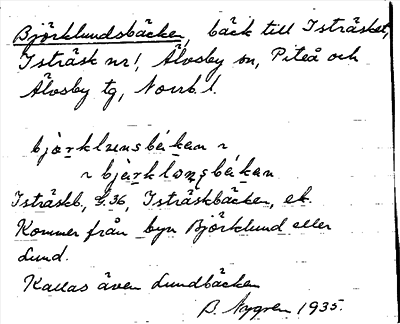 Björklundsbäcken, bäck till Isträsket,
Isträsk nr 1, Älvsby sn, Piteå och
Älvsby tg, Norrb. l.
bjàrklunsbékan ~
~ bjàrklonsbékan
Isträskb, G. 36, Isträskbäcken, ek.
Kommer från byn Björklund eller
Lund.
Kallas även Lundbäcken
B. Nygren 1935.